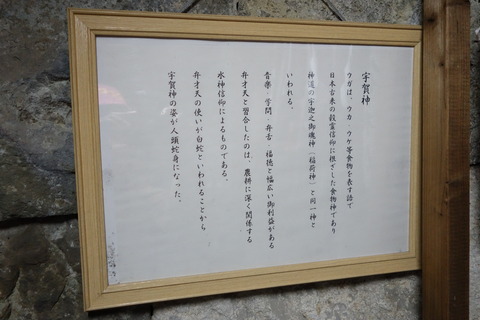 宇賀神
ウガは、ウカ　ウケ等食物を表す語で
日本古来の穀霊信仰に根ざした食物神であり
神道の宇迦之御魂神（稲荷神）と同一神と
いわれる。
音楽・学問・弁舌・福徳と幅広い御利益がある
弁才天と習合したのは、農耕に深く関係する
水神信仰によるものである。
弁才天の使いが白蛇といわれることから
宇賀神の姿が人頭蛇身になった。